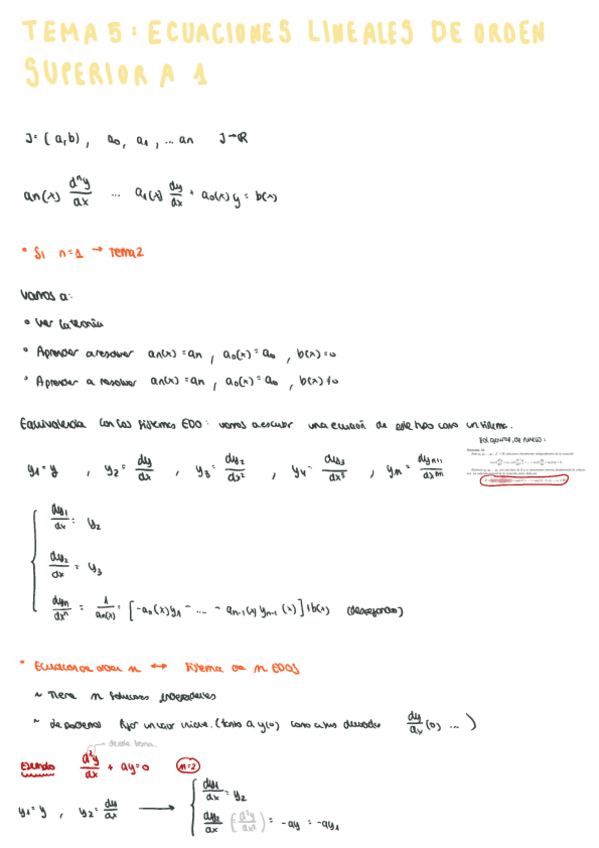 TEMA 5: ECUACIONES LINEALES DE ORDEN
SUPERIOR A 1
J=(a,b), a0, a1, ... an J→R
an(x) d^n y/dx ... a1(x) dy/dx + a0(x)y = b(x)
• Si n=1 → Tema 2
Vamos a:
• Ver la teoría
• Aprender a resolver an(x)=an, a0(x)=a0, b(x)=0
• Aprender a resolver an(x)=an, a0(x)=a0, b(x)≠0
Equivalencia con los sistemas EDO: vamos a escribir una ecuación de este tipo como un sistema.
y1=y, y2=dy/dx, y3=dy2/dx², y4=dy3/dx³, yn=
dy1/dx = y2
dy2/dx = y3
dyn/dx^n = 1/an(x) = [-a0(x)y1 - ... - an-1(x) yn-1(x)] b(x) (despejando)
• Ecuación de orden n ↔ Sistema de n EDOS
~ Tiene n soluciones
~ de fijar un valor (tanto a y(0) como a sus derivadas dy/dx(0) ...)
desde
Ejemplo d²y/dx + ay=0 n=2
y1=y, y2=dy/dx → dy1/dx = y2
dy2/dx (d²y/dx²) = -ay = -ay1